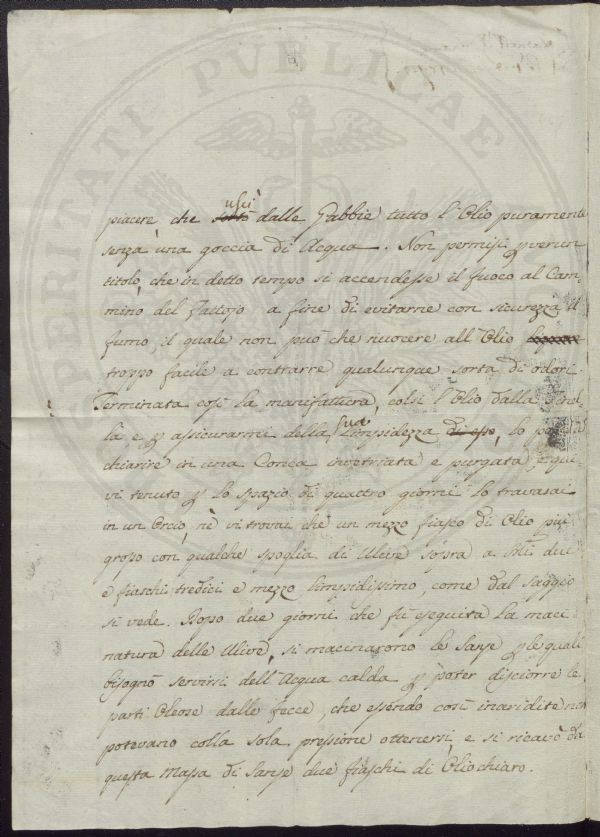 PROSPERITATI PUBLICAE
uscì
piacere che sortì dalle Gabbie tutto l'Olio puramente
senza una goccia di Acqua. Non permisi p verun
titolo, che in detto tempo si accendesse il fuoco al Cam-
mino del Fattojo a fine di evitarne con sicurezza il
fumo il quale non può che nuocere all'Olio
troppo facile a contrarre qualunque sorta di odori.
Terminata così la manifattura, colsi l'Olio dalla
la e p assicurarmi della sua limpidezza di esso, lo
chiarire in una Conca invetriata e purgata e qui-
vi tenuto p lo spazio di quattro giorni lo travasai
in un Orcio, nè vi trovai che un mezzo fiasco di Olio più
grosso con qualche spoglia di Ulive sopra a due
e fiaschi tredici e mezzo limpidissimo, come dal saggio
si vede. Dopo due giorni che fù eseguita la maci-
natura delle Ulive, si macinarono le Sanse p le quali
bisognò servirsi dell'Acqua calda p poter disciorre le
parti Oleose dalle fecce, che essendo così inaridite non
potevano colla sola pressione ottenersi, e si ricavò da
questa Massa di Sanse due fiaschi di Olio chiaro.